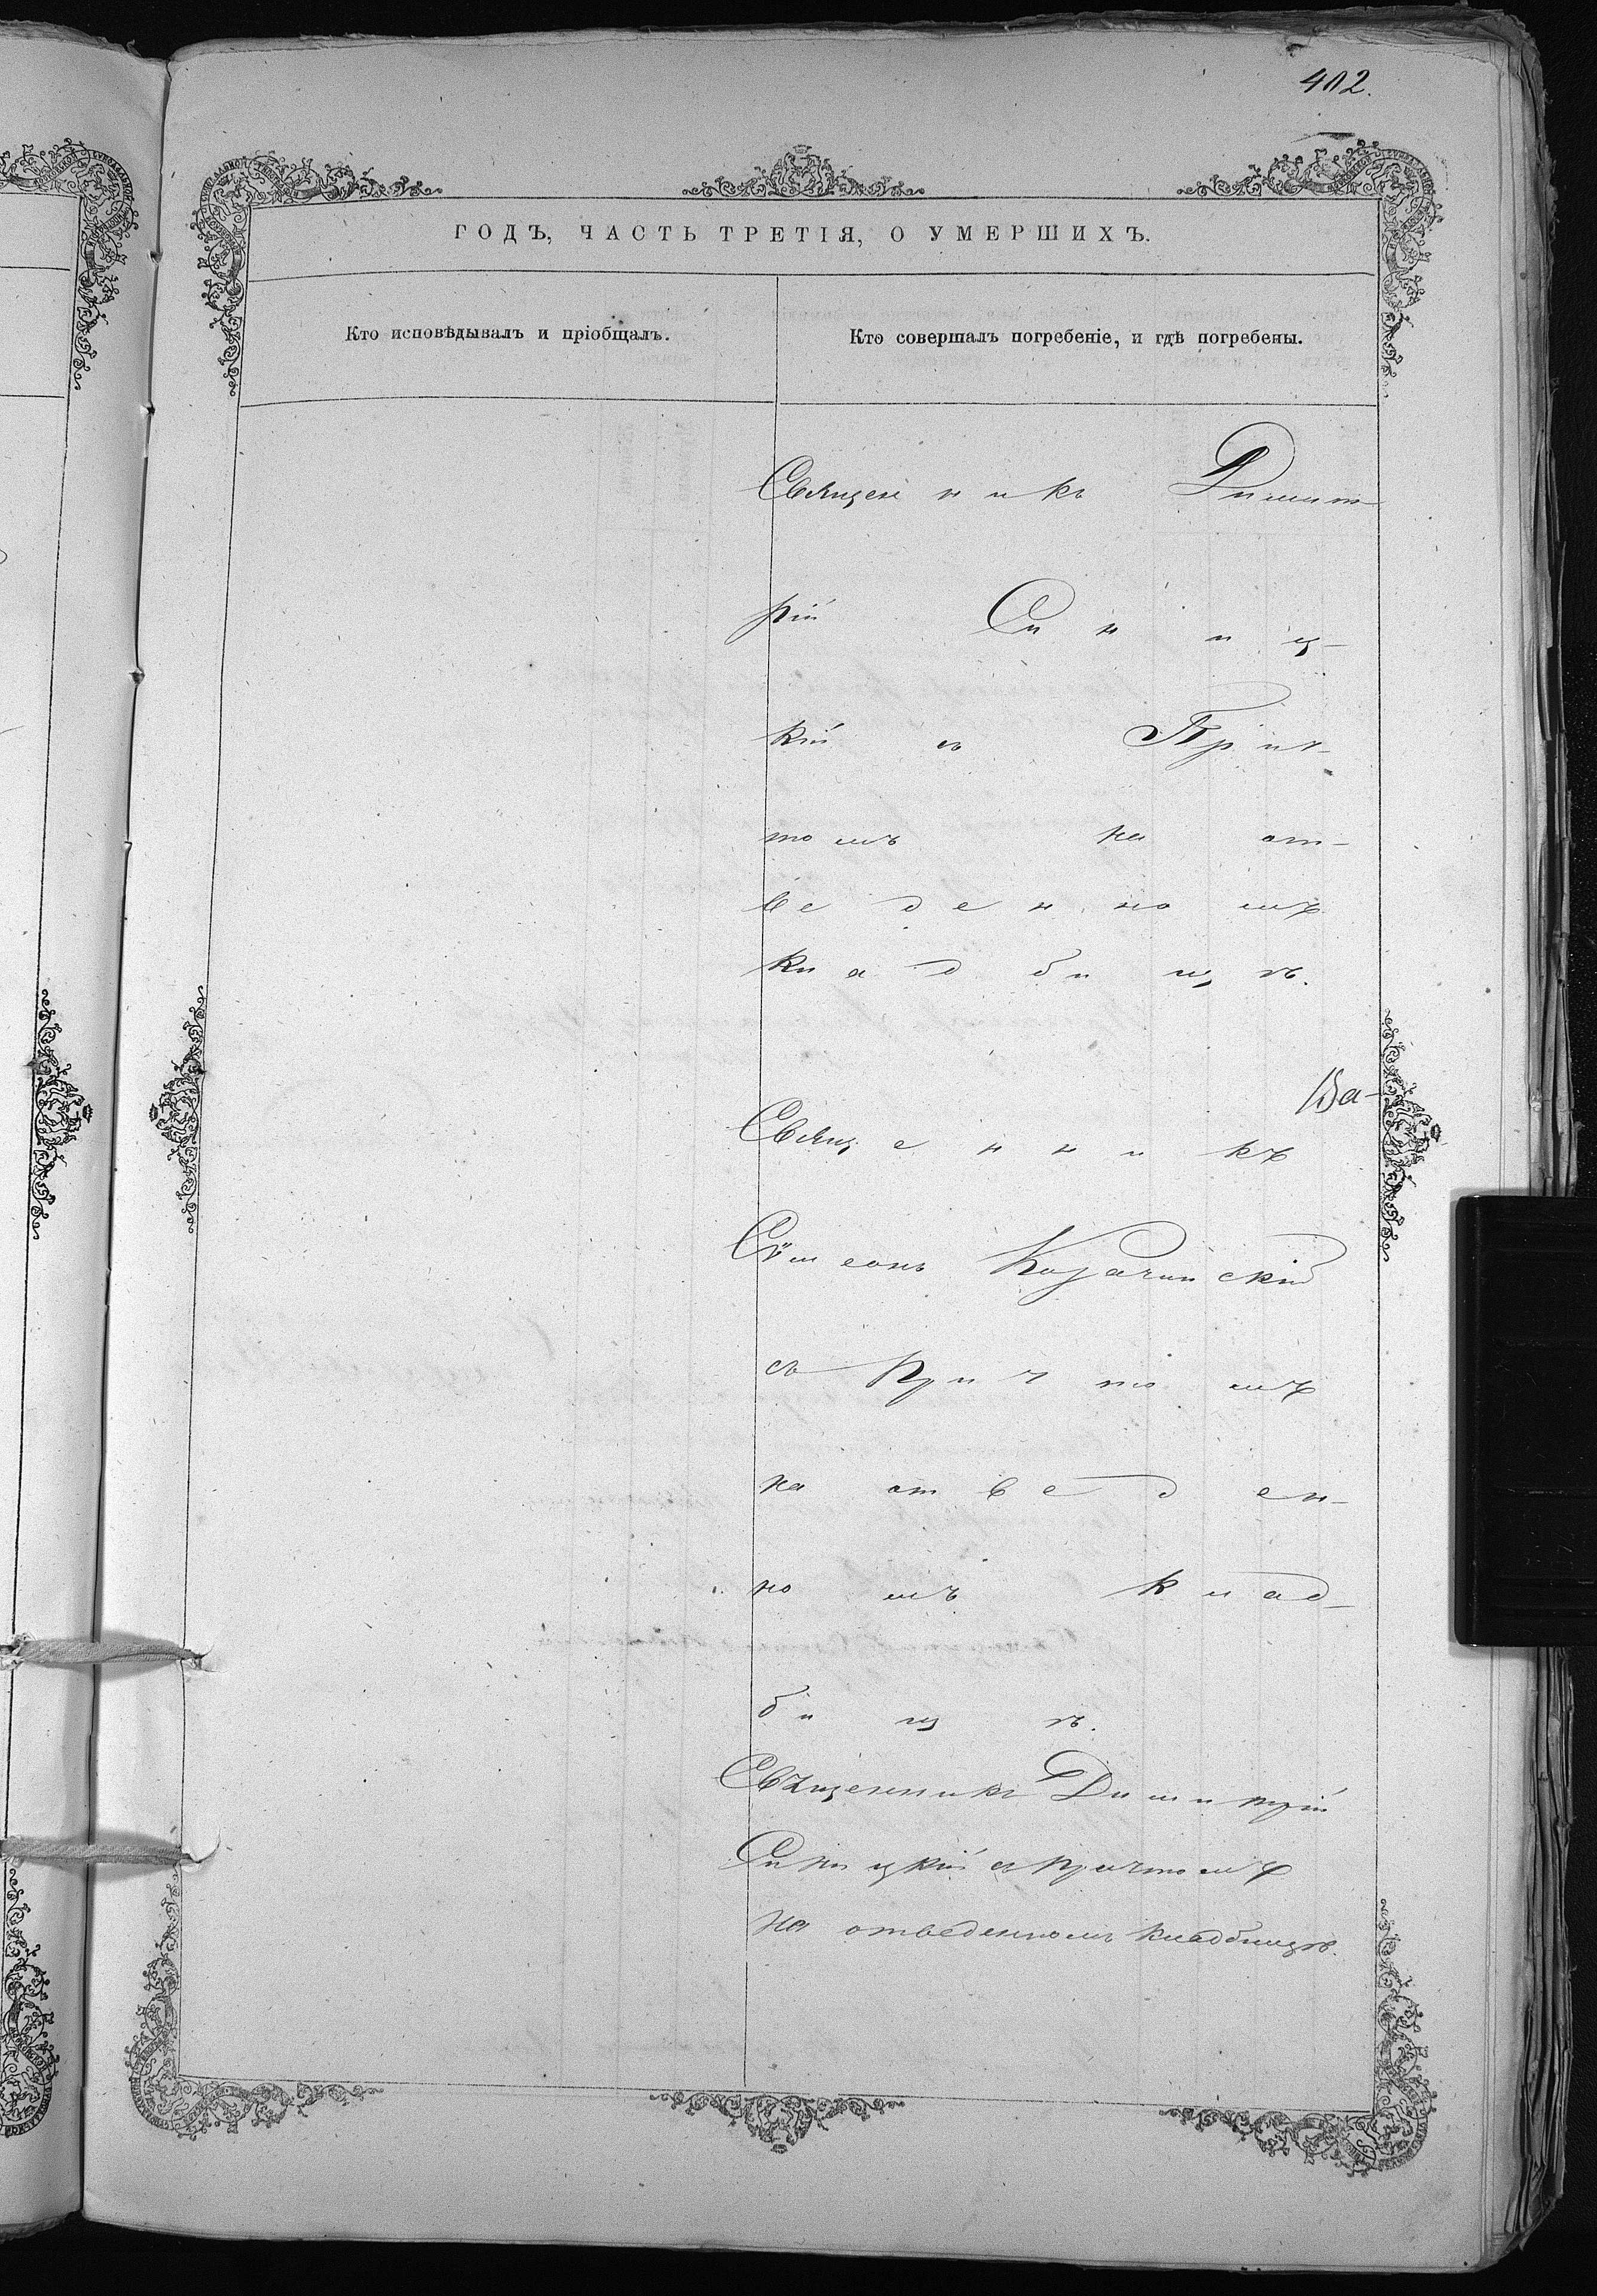 402.
ГОДЪ, ЧАСТЬ ТРЕТІЯ, О УМЕРШИХЪ.
Кто исповѣдывалъ и пріобщалъ.
Кто совершалъ погребеніе, и гдѣ погребены.
Священникъ Димит-
рій Синиц-
кій съ Прич-
томъ на от-
веденномъ
кладбищѣ.
Ва-
Священникъ
Сѵмеонъ Козачинскій
съ Причтомъ
на отведен-
номъ клад-
бищѣ.
Священникъ Димитрій
Синицкій съ причтомъ
на отведенномъ кладбищѣ.